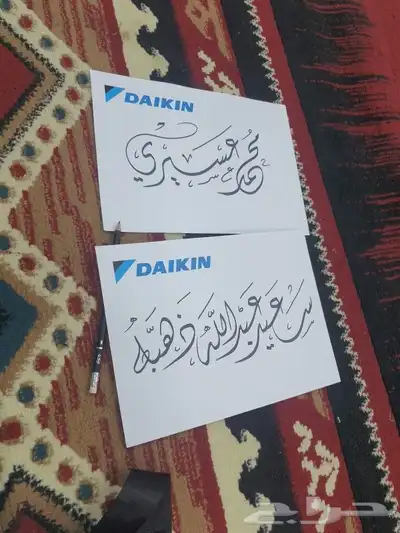 DAIKIN
محمد عسيري
DAIKIN
سعيد عبدالله ذهبه
حراج